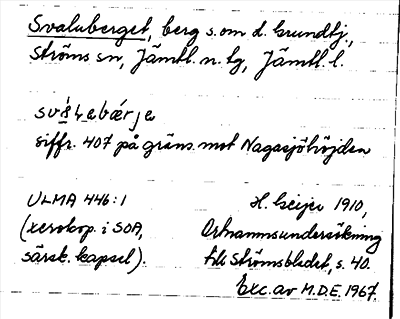 Svaluberget, berg s.om d. Grundtj.,
Ströms sn, Jämtl. n. tg, Jämtl. l.
siffr. 407 på gräns mot Nagasjöhöjden
ULMA 446:1 H. Geijer 1910,
(xerokop. i SOA, Ortnamnsundersökning
särsk. kapsel). till Strömsbladet, s. 40.
Exc. av M.D.E. 1967.